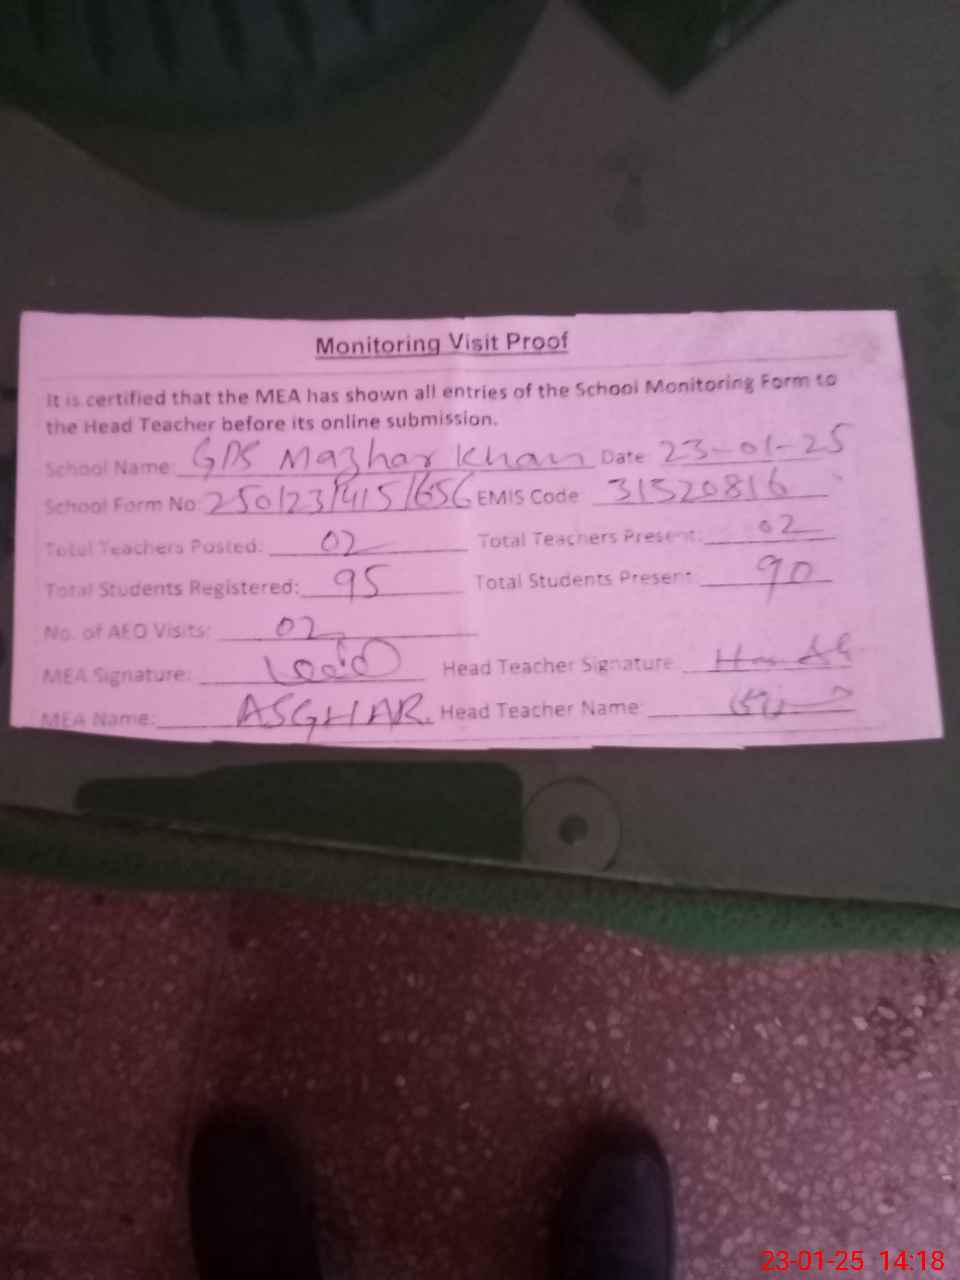 Monitoring Visit Proof
It is certified that the MEA has shown all entries of the School Monitoring Form to
the Head Teacher before its online submission.
School Name: GPS Mazhar Khan Date 23-01-25
School Form No 250/23/415/656 EMIS Code 31520816
Total Teachers Posted: 02 Total Teachers Present: 02
Total Students Registered: 95 Total Students Present 90
No. of AEO Visits: 02
MEA Signature: Head Teacher Signature
MEA Name: ASGHAR Head Teacher Name
23-01-25 14:18